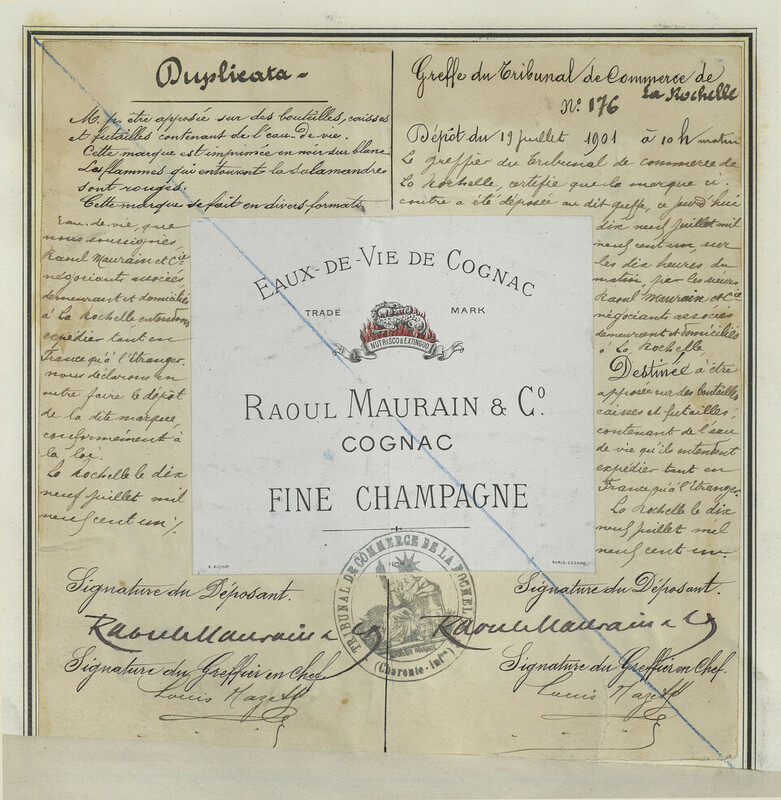 Duplicata
M. p. être apposée sur des bouteilles, caisses
et futailles contenant de l'eau-de-vie.
Cette marque est imprimée en noir sur blanc
Les flammes qui entourant la Salamandre
sont rouges.
Cette marque se fait en divers formats
Eau-de-vie, que
nous soussignés,
Raoul Maurain et Cie
négociants associés
demeurant et domiciliés
à La Rochelle entendons
expédier tant en
France qu'à l'Etranger.
nous déclarons en
outre faire le dépôt
de la dite marque,
conformément à
la loi.
La Rochelle le dix
neuf juillet mil
neuf cent un
Greffe du Tribunal de Commerce de
La Rochelle
No. 176
Dépôt du 19 juillet 1901 à 10 h matin
Le greffier du tribunal de commerce de
La Rochelle, certifie que la marque ci-
contre a été déposée au dit greffe, ce jourd'hui
dix neuf juillet mil
neuf cent un, sur
les dix heures du
matin, par les sieurs
Raoul Maurain et Cie
négociants associés
demeurant et domiciliés
à La Rochelle
Destinée à être
apposée sur des bouteilles
caisses et futailles,
contenant de l'eau
de vie qu'ils entendent
expédier tant en
France qu'à l'Etranger.
La Rochelle le dix
neuf juillet mil
neuf cent un
EAUX-DE-VIE DE COGNAC
TRADE MARK
NUTRISCO & EXTINGUO
RAOUL MAURAIN & Co.
COGNAC
FINE CHAMPAGNE
TRIBUNAL DE COMMERCE DE LA ROCHELLE
(Charente-Infre)
Signature du Déposant.
Raoul Maurain & Cie
Signature du Greffier en Chef.
Louis Mazeff
Signature du Déposant.
Raoul Maurain & Cie
Signature du Greffier en Chef.
Louis Mazeff